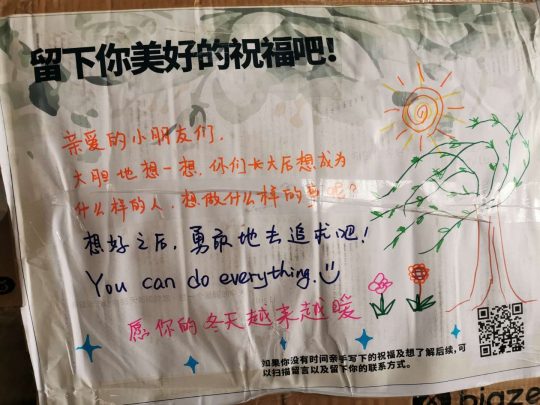 留下你美好的祝福吧!
亲爱的小朋友们,
大胆地想一想,你们长大后想成为
什么样的人,想做什么样的事呢?
想好之后,勇敢地去追求吧!
You can do everything.
愿你的冬天越来越暖
如果你没有时间亲手写下的祝福及想了解后续,可
以扫描留言以及留下你的联系方式。